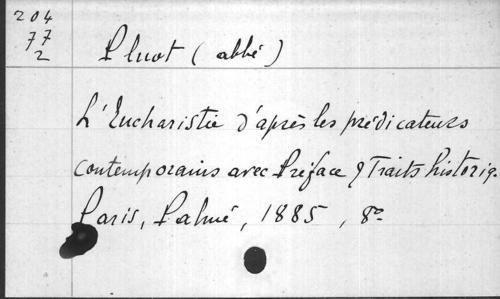 204
77
2
Pluot (abbé)
L'Eucharistie d'après les prédicateurs
contemporains avec Préface & Traits historiq.
Paris, Palmé, 1885, 8º